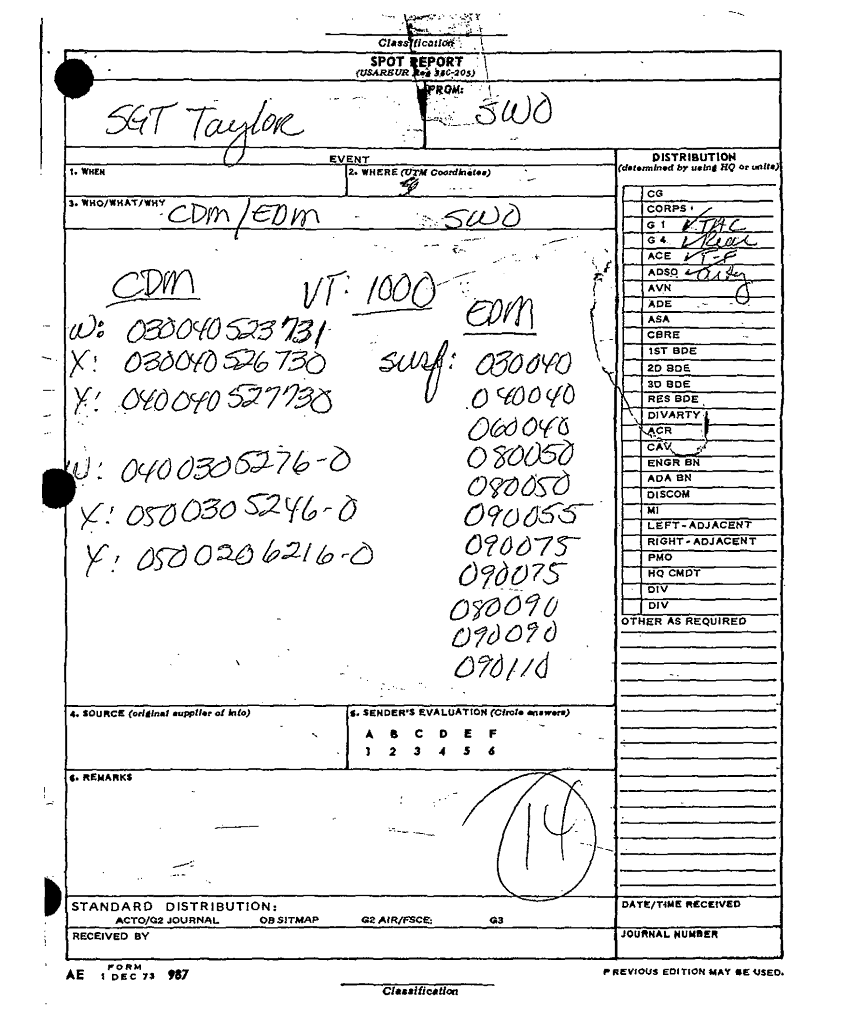 Classification
SPOT REPORT
(USAREUR Reg 380-205)
FROM:
SGT Taylor
SWO
EVENT
DISTRIBUTION
(determined by using HQ or units)
1. WHEN
2. WHERE (UTM Coordinates)
3. WHO/WHAT/WHY
CDM/EDM SWO
CG
CORPS
G 1 TAC
G 4 Rear
ACE
ADSO
AVN
ADE
ASA
CBRE
1ST BDE
2D BDE
3D BDE
RES BDE
DIVARTY
ACR
CAV
ENGR BN
ADA BN
DISCOM
MI
LEFT-ADJACENT
RIGHT-ADJACENT
PMO
HQ CMDT
DIV
DIV
OTHER AS REQUIRED
CDM
VT: 1000
W: 030040523731
X: 030040526730
Y: 040040527730
W: 0400305276-0
X: 0500305246-0
Y: 0500206216-0
EDM
surf: 030040
040040
060040
080050
080050
090055
090075
090075
080090
090090
090110
4. SOURCE (original supplier of info)
5. SENDER'S EVALUATION (Circle answers)
A B C D E F
1 2 3 4 5 6
6. REMARKS
14
STANDARD DISTRIBUTION:
ACTO/G2 JOURNAL OB SITMAP G2 AIR/FSCE: G3
RECEIVED BY
DATE/TIME RECEIVED
JOURNAL NUMBER
AE FORM 1 DEC 73 987
PREVIOUS EDITION MAY BE USED.
Classification